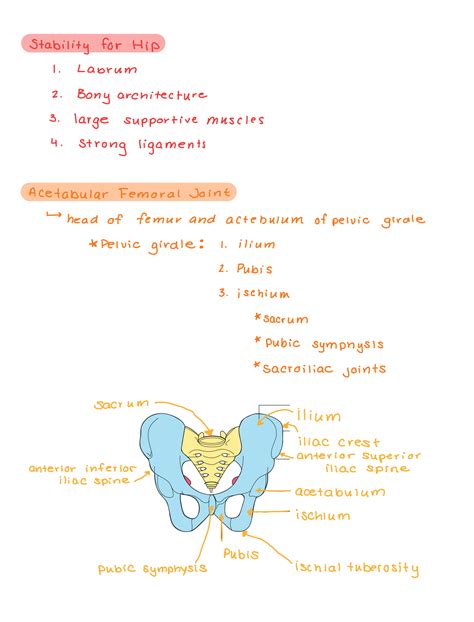 Stability for Hip
1. Labrum
2. Bony architecture
3. large supportive muscles
4. Strong ligaments
Acetabular Femoral Joint
↳ head of femur and actebulum of pelvic girale
*Pelvic girale: 1. ilium
2. Pubis
3. ischium
*sacrum
*Pubic symphysis
*Sacroiliac joints
sacrum
ilium
iliac crest
anterior superior
iliac spine
anterior inferior
iliac spine
acetabulum
ischium
Pubis
pubic symphysis
ischial tuberosity